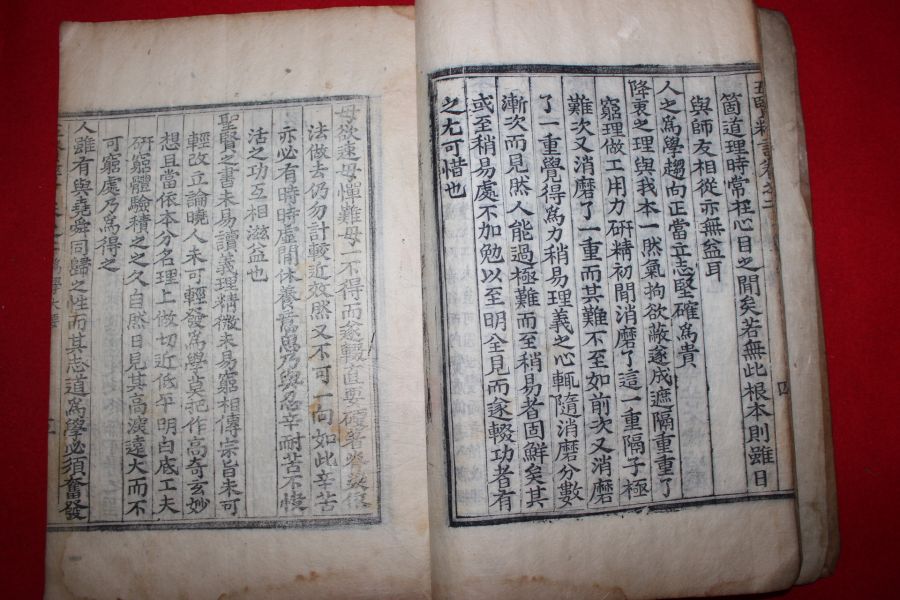 卷之二
箇道理時常在心目之閒矣若無此根本則雖日
與師友相從亦無益耳
人之爲學趨向正當立志堅確爲貴
降衷之理與我本一然氣拘欲蔽遂成遮隔重重了
窮理做工用力硏精初閒消磨了這一重隔子極
難次又消磨了一重而其難不至如前次又消磨
了一重覺得爲力稍易理義之心輒隨消磨分數
漸次而見然人能過極難而至稍易者固鮮矣其
或至稍易處不加勉以至明全見而遂輟功者有
之尤可惜也
四
毋欲速毋憚難毋一不得而遂輟直要硬著
法做去仍勿計較近效然又不可一向如此辛苦
亦必有時時虛閒休養與忍辛耐苦不
活之功互相滋益也
聖賢之書未易讀義理精微未易窮相傳宗旨未可
輕改立論曉人未可輕發爲學莫把作高奇玄妙
想且當依本分名理上做切近低平明白底工夫
硏窮體驗積之之久自然日見其高深遠大而不
可窮處乃爲得之
人雖有與堯舜同歸之性而其志道爲學必須奮發